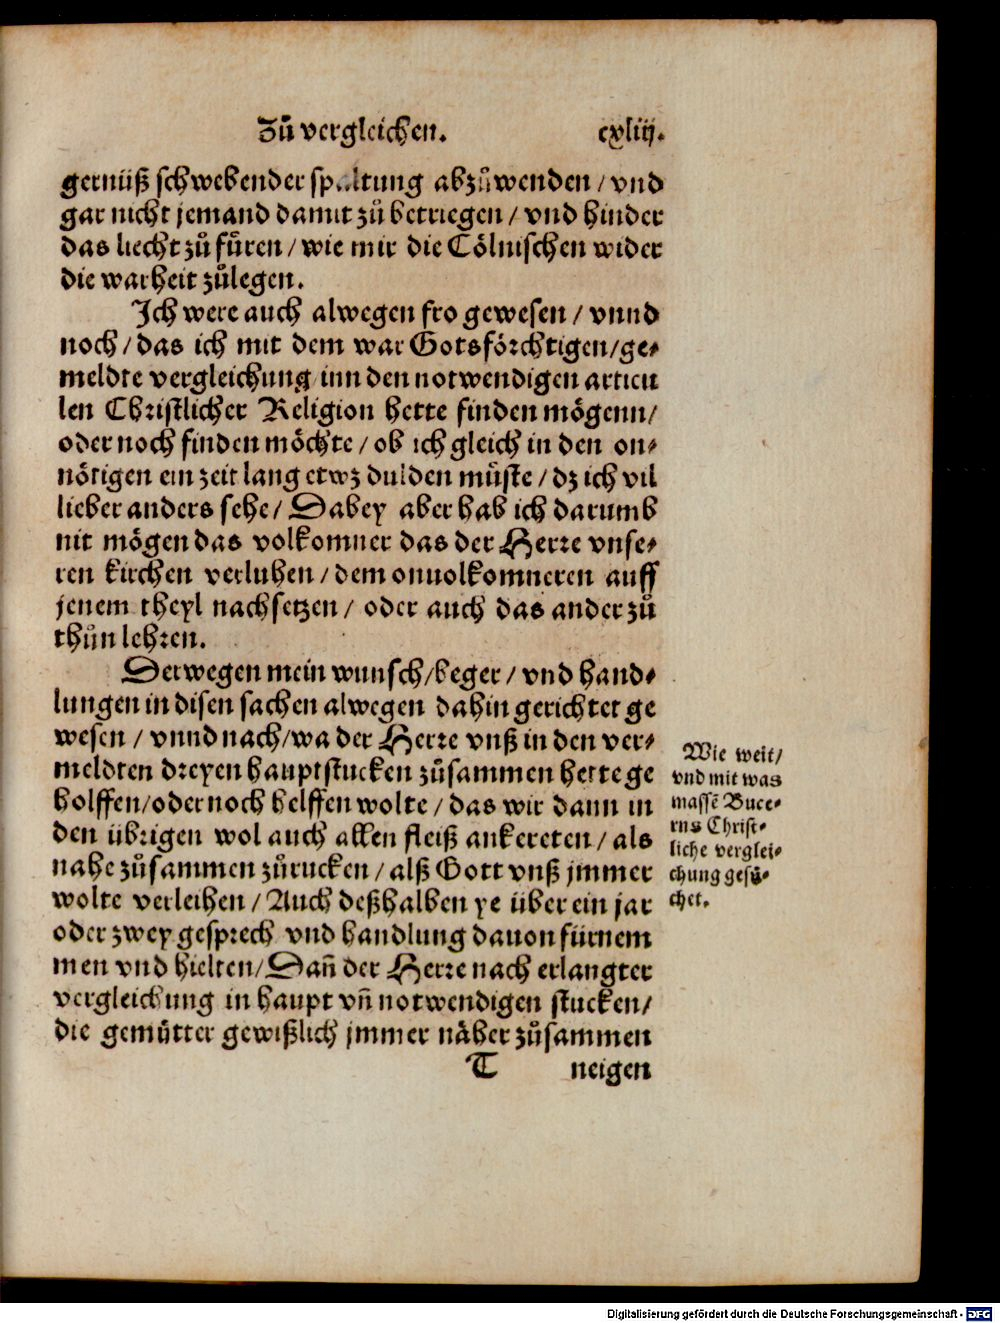 Zů vergleichen. cxliij.
gernüß schwebender spaltung abzůwenden / vnd
gar nicht jemand damit zů betriegen / vnd hinder
das liecht zů fůren / wie mir die Cölnischen wider
die warheit zůlegen.
Ich were auch alwegen fro gewesen / vnnd
noch / das ich mit dem war Gotsförchtigen / ge-
meldte vergleichung inn den notwendigen articu
len Christlicher Religion hette finden mögenn /
oder noch finden möchte / ob ich gleich in den on-
nötigen ein zeit lang etwz dulden můste / dz ich vil
lieber anders sehe / Dabey aber hab ich darumb
nit mögen das volkomner das der Herre vnse-
ren kirchen verluhen / dem onuolkomneren auff
jenem theyl nachsetzen / oder auch das ander zů
thůn lehren.
Derwegen mein wunsch / beger / vnd hand-
lungen in disen sachen alwegen dahin gerichtet ge
wesen / vnnd nach / wa der Herre vnß in den ver-
meldten dreyen hauptstucken zůsammen hette ge
holffen / oder noch helffen wolte / das wir dann in
den übrigen wol auch allen fleiß ankereten / als
nahe zůsammen zůrucken / alß Gott vnß jmmer
wolte verleihen / Auch deßhalben ye über ein jar
oder zwey gesprech vnd handlung dauon fürnem
men vnd hielten / Dañ der Herre nach erlangter
vergleichung in haupt vñ notwendigen stucken /
die gemůtter gewißlich jmmer näher zůsammen
T neigen
Wie weit /
vnd mit was
massē Buce-
rus Christ-
liche verglei-
chung gesů-
chet.
Digitalisierung gefördert durch die Deutsche Forschungsgemeinschaft - DFG